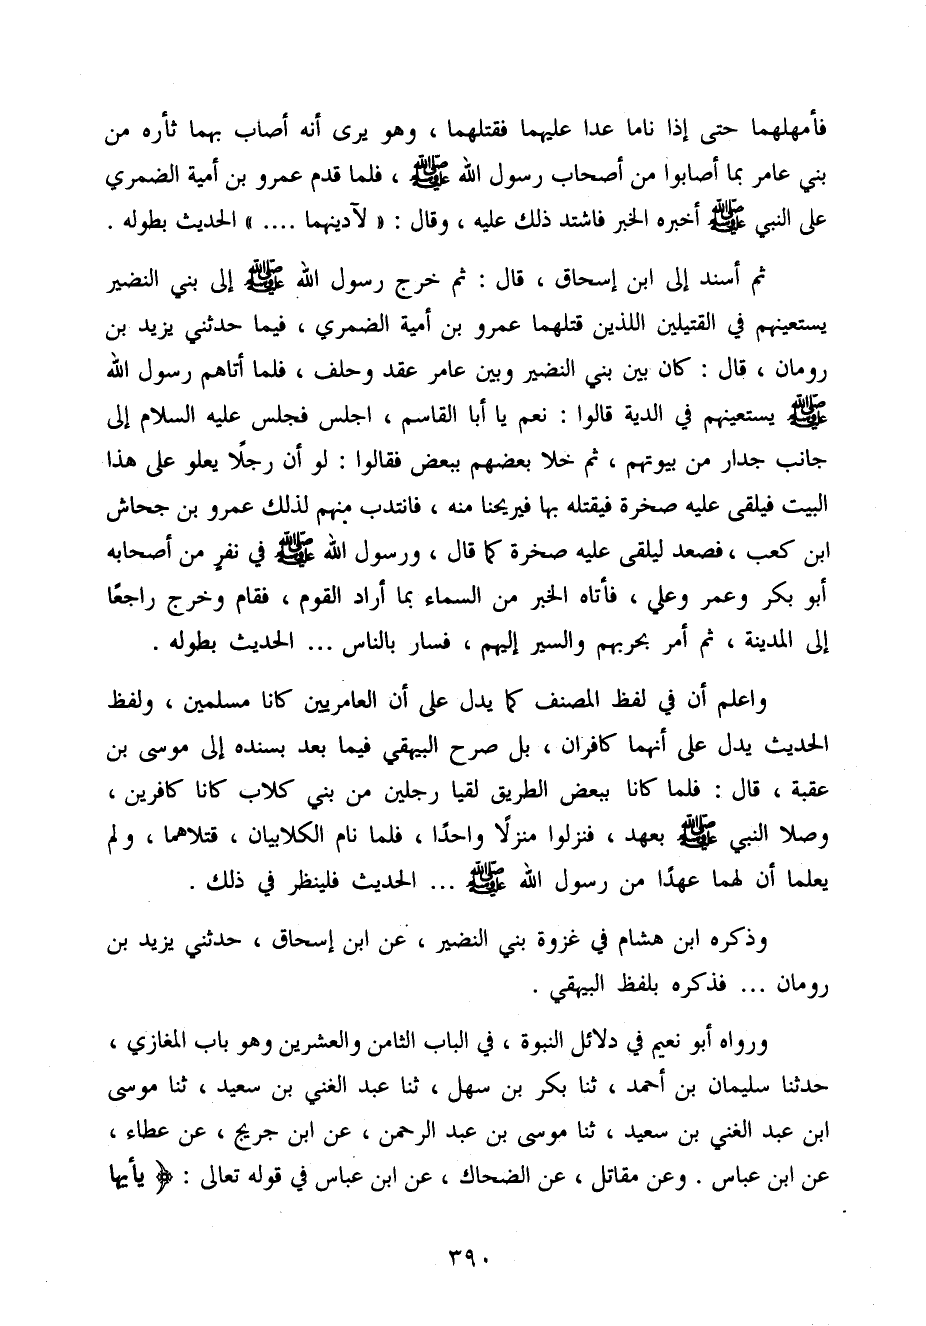 فأمهلهما حتى إذا ناما عدا عليهما فقتلهما ، وهو يرى أنه أصاب بهما ثأره من
بني عامر بما أصابوا من أصحاب رسول الله ﷺ ، فلما قدم عمرو بن أمية الضمري
على النبي ﷺ أخبره الخبر فاشتد ذلك عليه ، وقال : « لآدينهما .... » الحديث بطوله .
ثم أسند إلى ابن إسحاق ، قال : ثم خرج رسول الله ﷺ إلى بني النضير
يستعينهم في القتيلين اللذين قتلهما عمرو بن أمية الضمري ، فيما حدثني يزيد بن
رومان ، قال : كان بين بني النضير وبين عامر عقد وحلف ، فلما أتاهم رسول الله
ﷺ يستعينهم في الدية قالوا : نعم يا أبا القاسم ، اجلس فجلس عليه السلام إلى
جانب جدار من بيوتهم ، ثم خلا بعضهم ببعض فقالوا : لو أن رجلًا يعلو على هذا
البيت فيلقى عليه صخرة فيقتله بها فيريحنا منه ، فانتدب منهم لذلك عمرو بن جحاش
ابن كعب ، فصعد ليلقى عليه صخرة كما قال ، ورسول الله ﷺ في نفرٍ من أصحابه
أبو بكر وعمر وعلي ، فأتاه الخبر من السماء بما أراد القوم ، فقام وخرج راجعًا
إلى المدينة ، ثم أمر بحربهم والسير إليهم ، فسار بالناس ... الحديث بطوله .
واعلم أن في لفظ المصنف كما يدل على أن العامريين كانا مسلمين ، ولفظ
الحديث يدل على أنهما كافران ، بل صرح البيهقي فيما بعد بسنده إلى موسى بن
عقبة ، قال : فلما كانا ببعض الطريق لقيا رجلين من بني كلاب كانا كافرين ،
وصلا النبي ﷺ بعهد ، فنزلوا منزلًا واحدًا ، فلما نام الكلابيان ، قتلاهما ، ولم
يعلما أن لهما عهدًا من رسول الله ﷺ ... الحديث فلينظر في ذلك .
وذكره ابن هشام في غزوة بني النضير ، عن ابن إسحاق ، حدثني يزيد بن
رومان ... فذكره بلفظ البيهقي .
ورواه أبو نعيم في دلائل النبوة ، في الباب الثامن والعشرين وهو باب المغازي ،
حدثنا سليمان بن أحمد ، ثنا بكر بن سهل ، ثنا عبد الغني بن سعيد ، ثنا موسى
ابن عبد الغني بن سعيد ، ثنا موسى بن عبد الرحمن ، عن ابن جريج ، عن عطاء ،
عن ابن عباس . وعن مقاتل ، عن الضحاك ، عن ابن عباس في قوله تعالى : ﴿ يأيها
٣٩٠